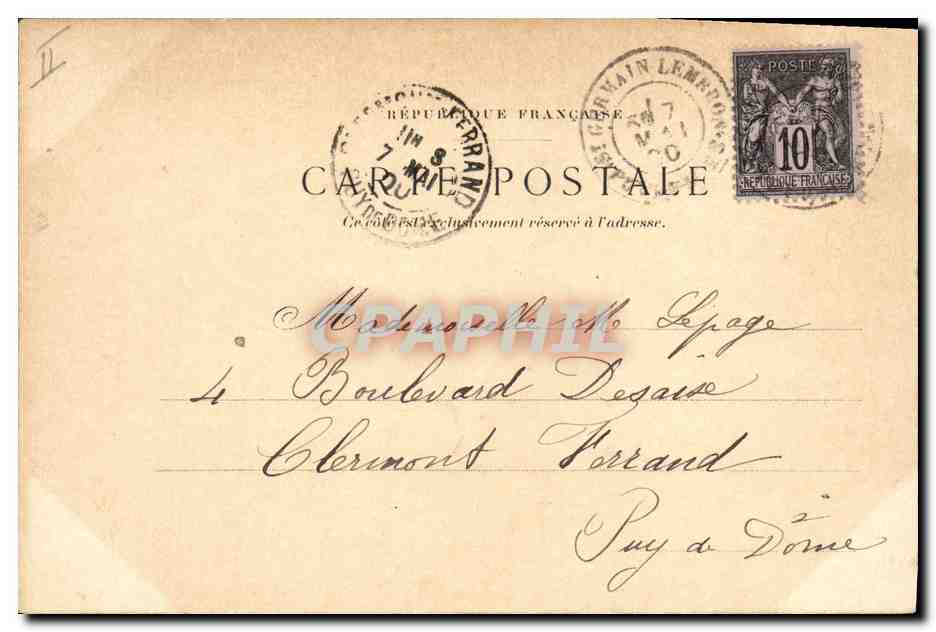 II
RÉPUBLIQUE FRANÇAISE
CARTE POSTALE
Ce côté est exclusivement réservé à l'adresse.
POSTE
10
REPUBLIQUE FRANÇAISE
ST GERMAIN LEMBRON
7
MAI
00
CLERMONT-FERRAND
8
7 MAI
00
PUY DE DOME
CPAPHIL
Mademoiselle M Lepage
4 Boulevard Desaise
Clermont Ferrand
Puy de Dôme